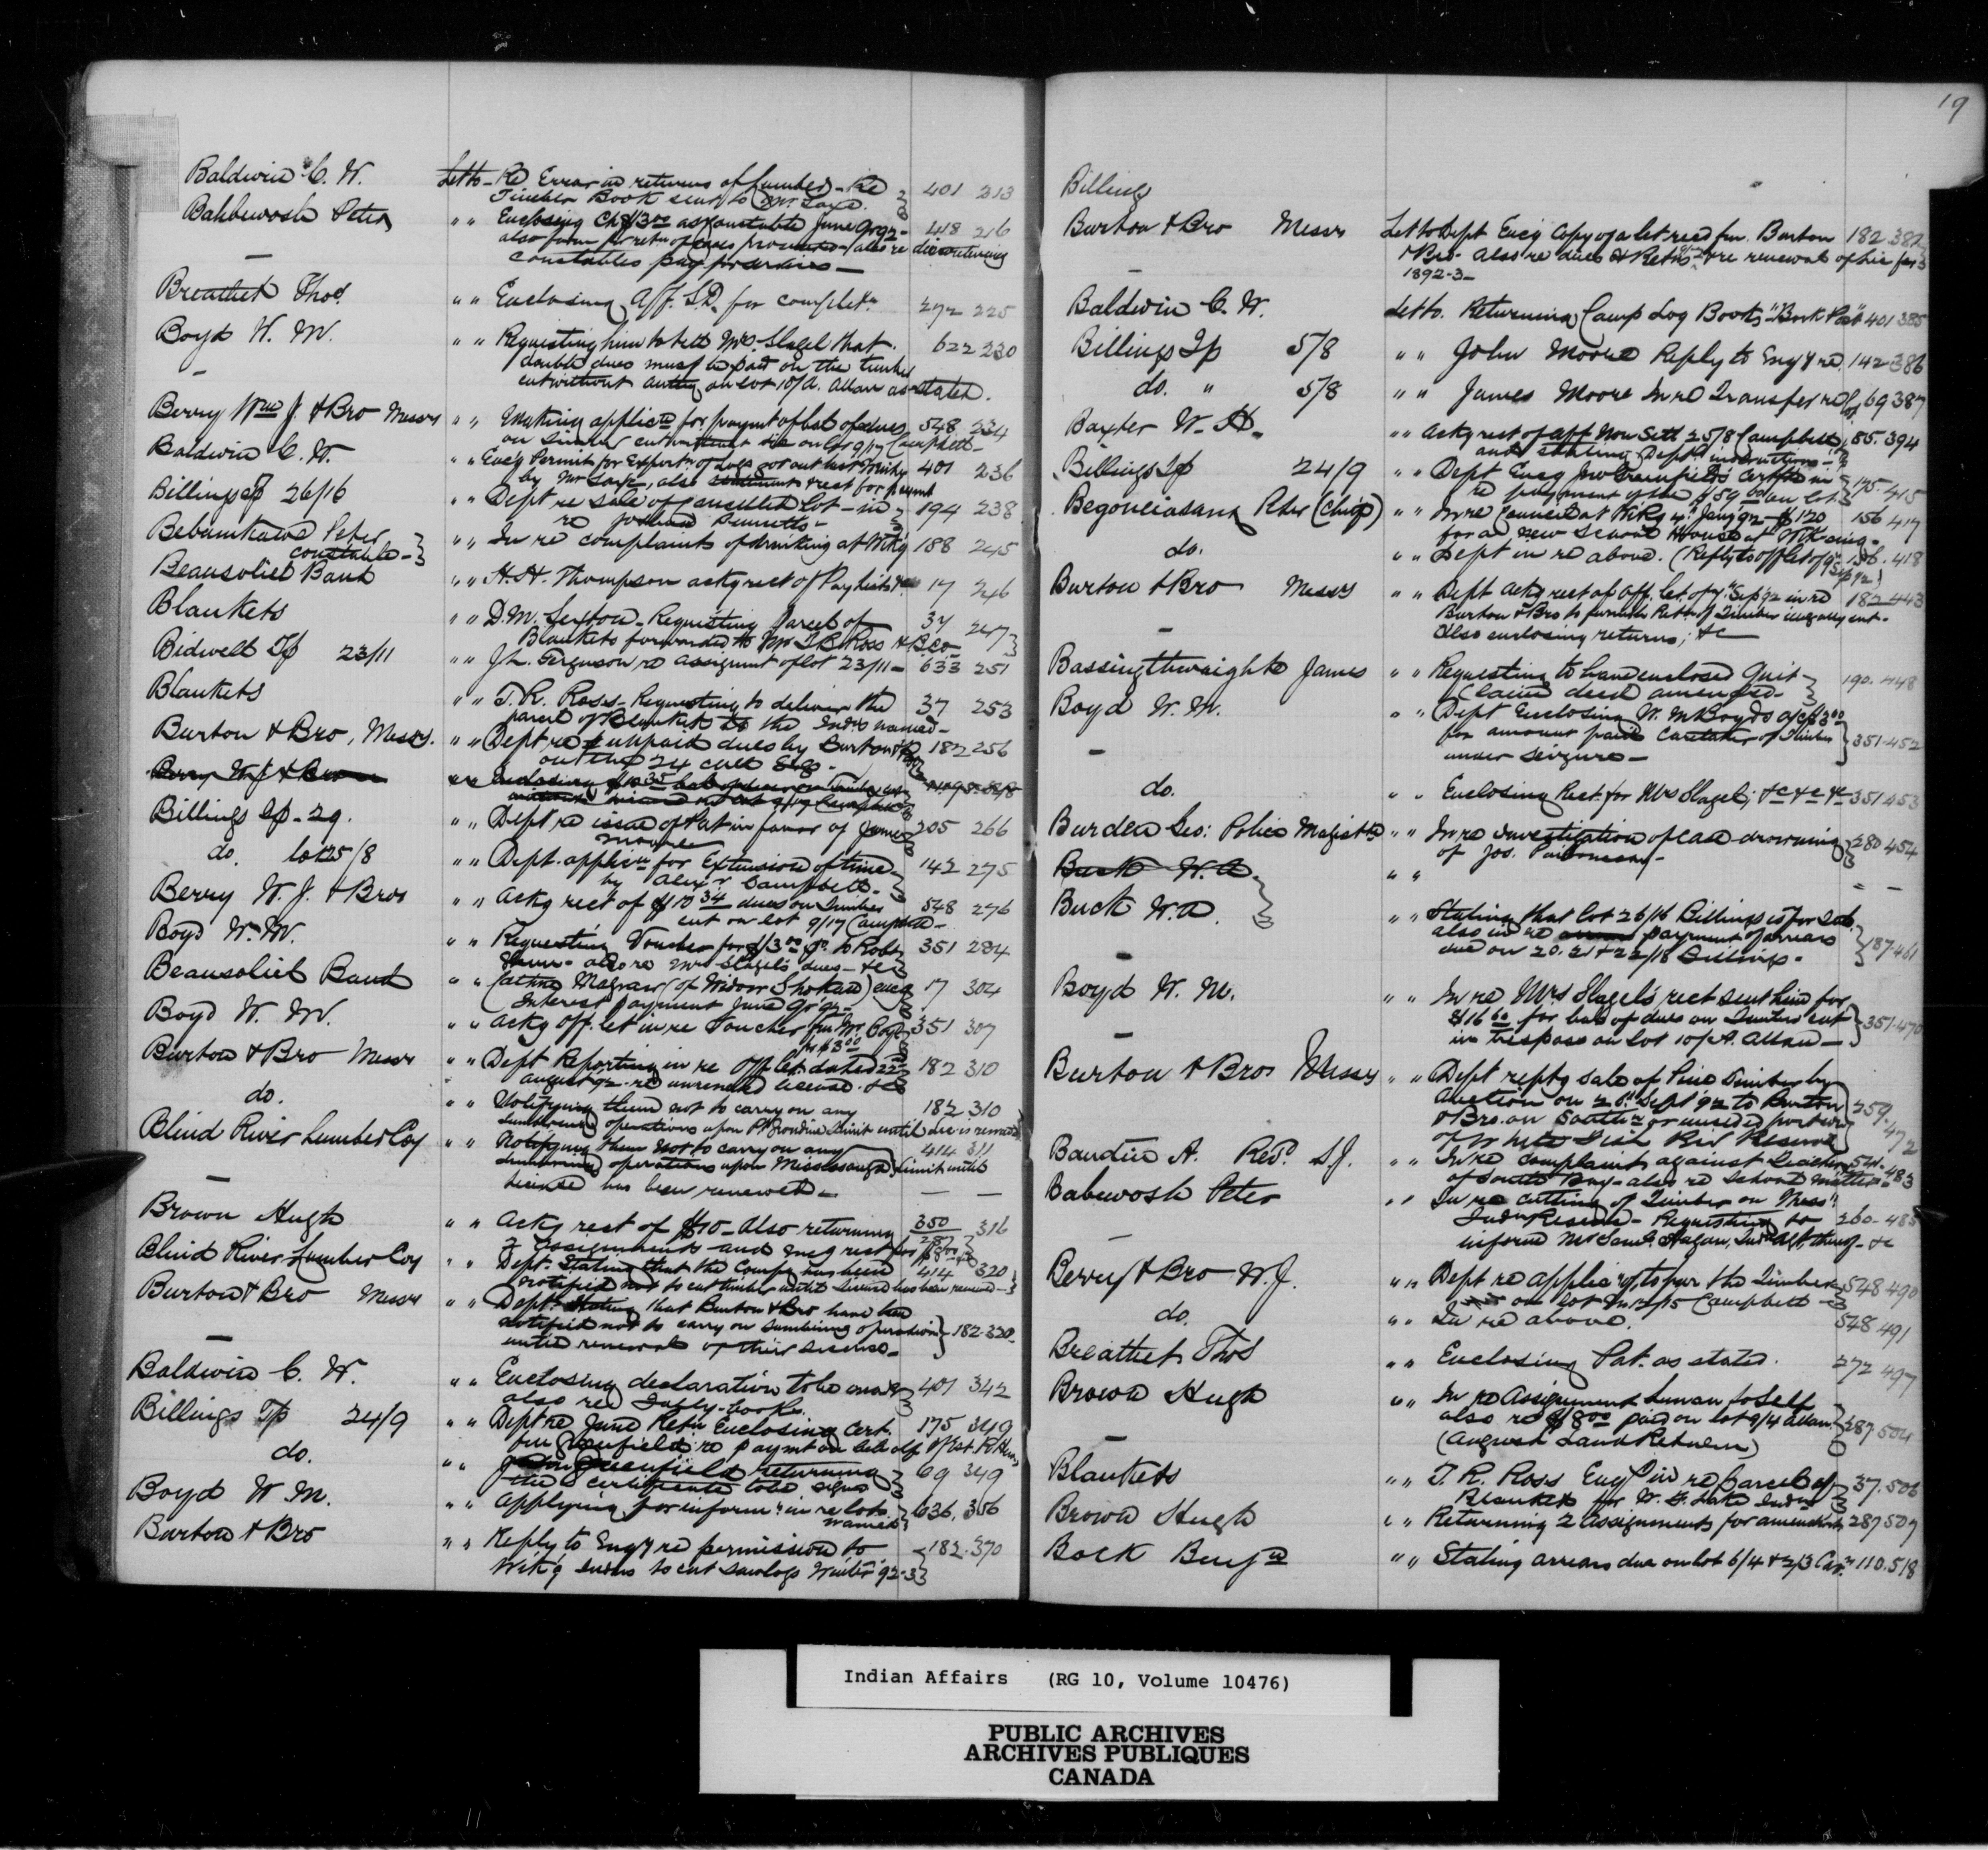 Baldwin C. W. Let to - Re Error in returns of lumber - Re 401 213
Timber Book sent to Mr Saxe.
Bahbewash Peter " " Enclosing Ch $13.00 as constable June Qr 92 - 418 216
also form for retn of cases - also re discontinuing
constables pay for services -
Breathet Thos. " " Enclosing Aff. S.D. for completn. 272 225
Boyd W. M. " " Requesting him to tell Mrs Slagel that 622 230
double dues must be paid on the timber
cut without authy on lot 10/A. Allan as stated.
Berry Wm J. & Bro Messrs " " Making applicn for paymt of bal of dues 548 234
on timber cut on lot 9/17 Campbell -
Baldwin C. W. " " Enc'g Permit for Exportn of logs got out last Winter 401 236
by Mr Saxe, also & rect for paymt
Billings Tp 26/16 " " Dept re sale of cancelled lot - in 194 238
re Bennetts -
Bebamkawe Peter " " In re complaints of drinking at Wik'g 188 245
Constable -
Beausoliel Band " " H. H. Thompson ackg rect of Pay lists &c 17 246
Blankets " " D. M. Sexton - Requesting parcel of 37 247
Blankets forwarded to Mr T. R. Ross & Bco
Bidwell Tp 23/11 " " J. L. Ferguson re assignmt of lot 23/11 - 633 251
Blankets " " T. R. Ross - Requesting to deliver the 37 253
parcel of Blankets to the Inds named -
Burton & Bro, Messrs. " " Dept re unpaid dues by Burton & Bro 182 256
on the 24
Berry W. J. & Bro " " Enclosing $10.35 bal of dues on Timber cut
on lot 9/17 Campbell
Billings Tp - 29. " " Dept re issue of Pat in favor of James 205 266
Moore
do. lot 25/8 " " Dept. applicn for Extension of time 142 275
by Alexr Campbell -
Berry W. J. & Bros " " Ackg rect of $10.34 dues on Timber 548 276
cut on lot 9/17 Campbell -
Boyd W. M. " " Requesting Voucher for $13.00 to Robt 351 284
also re Mrs Slagel's dues - &c
Beausoliel Band " " (of Widow Shokan) enc'g 17 304
Interest payment June Qr '92 -
Boyd W. M. " " Ackg off. let in re Voucher fm Mr Boyd 351 307
for $3.00
Burton & Bro Messrs " " Dept Reporting in re Off let dated 22nd 182 310
August 92 - re unrenewed license - &c
do. " " Notifying them not to carry on any 182 310
Lumbering operations upon Pt Grondine Limit until lic is renewed
Blind River Lumber Coy " " Notifying them not to carry on any 414 311
Lumbering operations upon Mississauga Limit until
license has been renewed -
Brown Hugh " " Ackg rect of $10 - Also returning 350 287 316
2 assignments and enc'g rect for $8.00 - &c
Blind River Lumber Coy " " Dept. Stating that the Compy has been 414 320
notified not to cut timber until License has been renewed -
Burton & Bro Messrs " " Dept. Stating that Burton & Bro have been
notified not to carry on Lumbering operations 182.320
until renewal of their License -
Baldwin C. W. " " Enclosing declaration to be made 401 342
also re Tally-books.
Billings Tp 24/9 " " Dept re June Retn Enclosing Cert. 175 349
fm Greenfield re paymt on behalf of Est.
do. " " Jno Greenfield returning 69 349
the certificate to be signed
Boyd W. M. " " Applying for informn in re lots 636, 356
named
Burton & Bro " " Reply to Enq'y re permission to 182.370
Wik'g Indns to cut sawlogs Winter '92-3
19
Billings
Burton & Bro Messrs Let to Dept Enc'g Copy of a let recd fm. Burton 182 382
& Bro - Also re dues & Retns & re renewal of lic for
1892-3 -
Baldwin C. W. Let to. Returning Camp Log Books "Book Post" 401 385
Billings Tp 5/8 " " John Moore Reply to Enq'y re. 142 386
do. " 5/8 " " James Moore In re Transfer re lot 69 387
Baxter W. H. " " Ackg rect of Aff Non Settt 25/8 Campbell 85.394
and stating Dept's instructions -
Billings Tp 24/9 " " Dept Enc'g Jno Greenfield's Certfte in 175.415
re payment of the $59.00 on lot.
Begonciasang Peter (Chief) " " In re Council at Wik'g 4th Jany '92 - $120 156 417
for a new School House at Wik'aing -
do. " " Dept in re above. (Reply to off let of 9th Sep 92) 156.418
Burton & Bro Messrs " " Dept Ackg rect of Off. let. of 7th Sep 92 in re 182 443
Burton & Bro to furnish Retn of Timber illegally cut -
Also enclosing returns, &c
Bassingthwaighte James " " Requesting to hand enclosed Quit 190.448
Claim deed amended -
Boyd W. M. " " Dept Enclosing W. M Boyds a/c $3.00
for amount paid Caretaker of Timber 351.452
under seizure -
do. " " Enclosing Rect. for Mrs Slagel; &c &c &c 351.453
Burden Geo: Police Magistte " " In re investigation of case drowning 280 454
of Jos.
Buck W. A. " "
Buck W. A. " " Stating that lot 26/16 Billings is for sale
also in re payment of arrears 187.461
due on 20.21 & 22/18 Billings -
Boyd W. M. " " In re Mrs Slagel's rect sent him for
$16.60 for bal of dues on Timber cut 351.470
in trespass on lot 10/A. Allan -
Burton & Bros Messrs " " Dept rept'g sale of Pine Timber by
Auction on 20th Sept 92 to Burton 259.472
& Bro. on Southn or unsold portion
of White Fish Riv Reserve
Baudin A. Revd. S.J. " " In re complaint against Teacher 541.483
of South Bay - also re School matters
Babewosh Peter " " In re cutting of Timber on Miss'
Indn Reserve - Requesting to 260-485
inform Mr Saml. Hagan, Ind Agt, thereof - &c
Berry & Bro W. J. " " Dept re applicn to pur. the Timber 548 490
on lot 15 Campbell -
do. " " In re above. 548 491
Breathet Thos " " Enclosing Pat. as stated. 272 497
Brown Hugh " " In re Assignment Luman to Self
also re $8.00 paid on lot 9/4 Allan 287.504
(August Land Returns)
Blankets " " T. R. Ross Enq'y in re parcel of 37.506
Blankets for W. F. Lake Indns
Brown Hugh " " Returning 2 assignments for amendmt 287 507
Bock Benjn " " Stating arrears due on lot 6/4 & 2/3 Car. 110.518
Indian Affairs (RG 10, Volume 10476)
PUBLIC ARCHIVES
ARCHIVES PUBLIQUES
CANADA